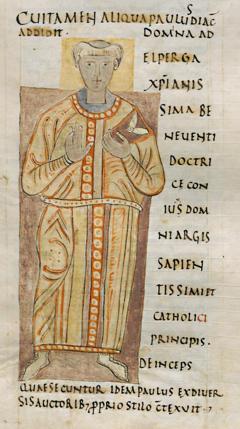 CUITAMEN ALIQUA PAULUS DIAC
ADDIDIT. DOMNA AD
ELPERGA
XPIANIS
SIMA BE
NEVENTI
DOCTRI
CE CON
IUS DOM
NI ARGIS
SAPIEN
TISSIMI ET
CATHOLICI
PRINCIPIS.
DEINCEPS
QUAESECUNTUR IDEM PAULUS EX DIVER
SIS AUCTORIB; PPRIO STILO CTEXUIT